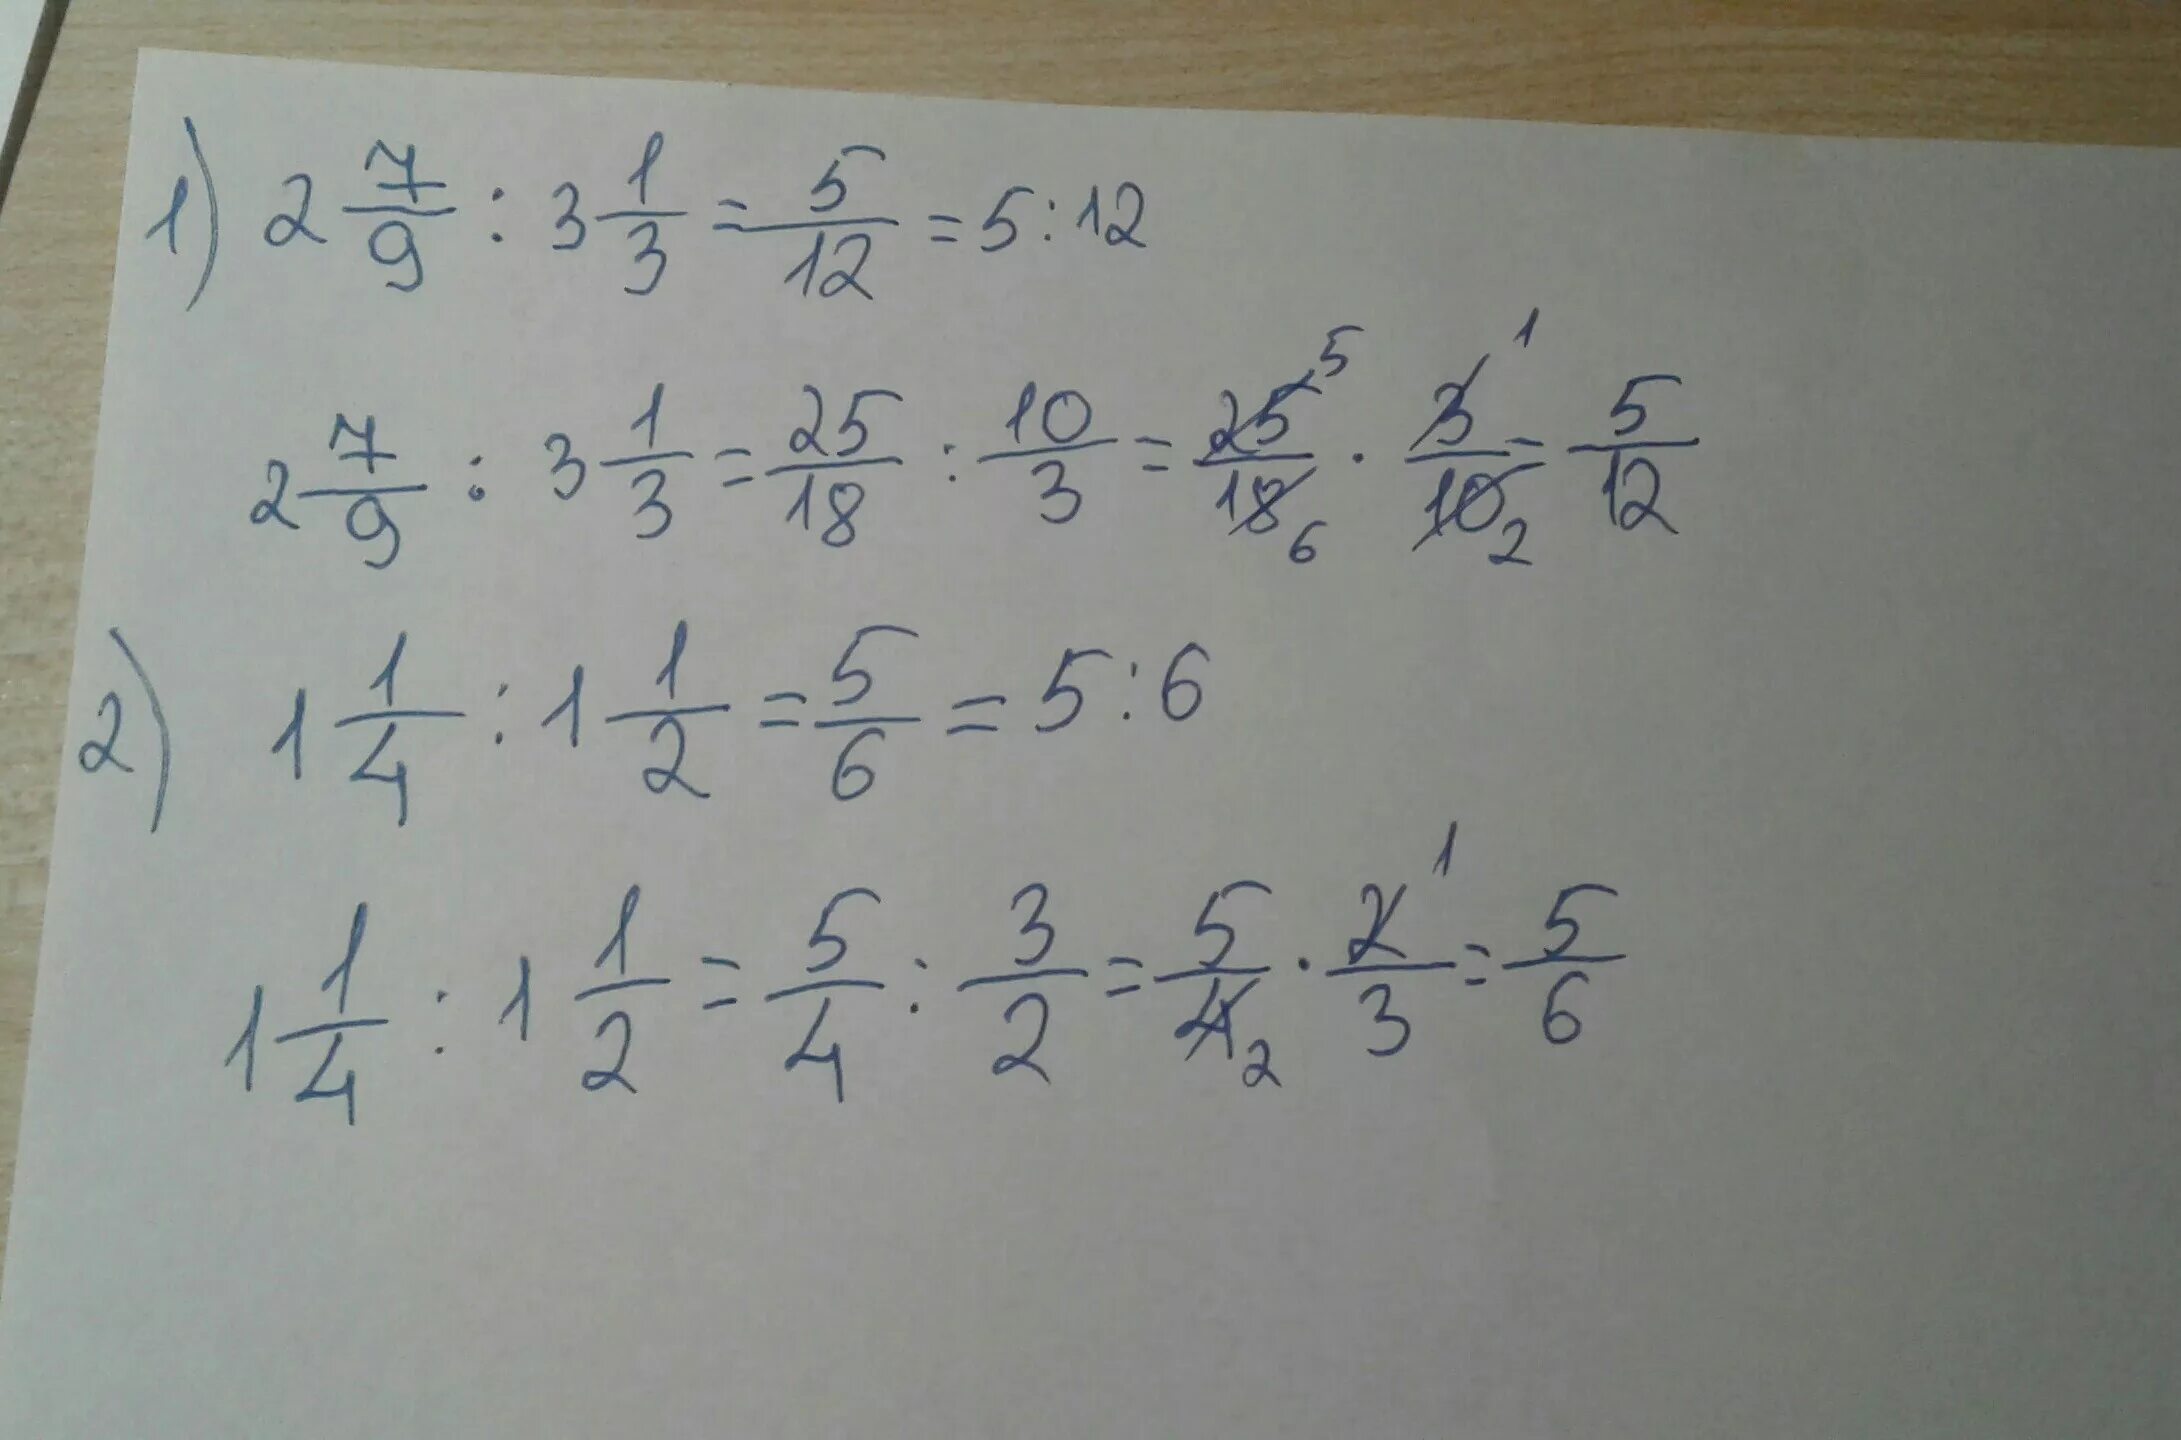 1) 2 7/9 : 3 1/3 = 5/12 = 5:12
2 7/9 : 3 1/3 = 25/18 : 10/3 = 25 5/18 6 · 3 1/10 2 = 5/12
2) 1 1/4 : 1 1/2 = 5/6 = 5:6
1 1/4 : 1 1/2 = 5/4 : 3/2 = 5/4 2 · 2 1/3 = 5/6